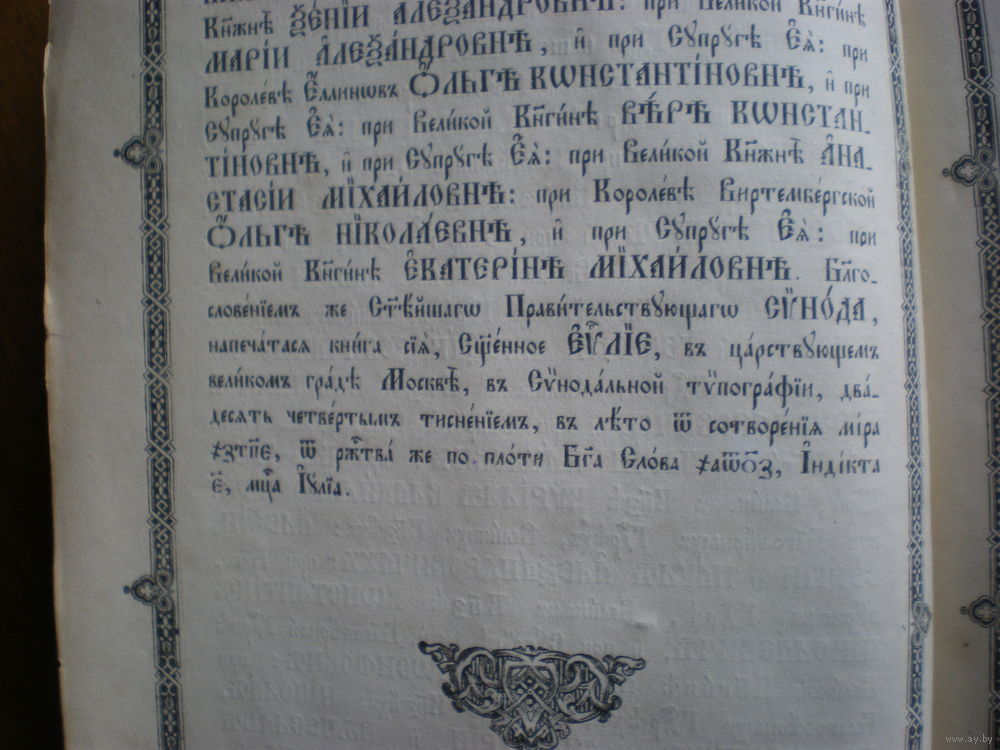 Кн҃жнѣ Ѯе́нїи Алеѯа́ндровнѣ: при Вели́кой Кн҃ги́нѣ
Марі́и Алеѯа́ндровнѣ, и҆ при Сꙋпрꙋ́гѣ Є҆ѧ̀: при
Короле́вѣ Є҆́ллинѡвъ Ѻ҆́льгѣ Кѡнстанті́новнѣ, и҆ при
Сꙋпрꙋ́гѣ Є҆ѧ̀: при Вели́кой Кн҃ги́нѣ Вѣ́рѣ Кѡнстан-
ті́новнѣ, и҆ при Сꙋпрꙋ́гѣ Є҆ѧ̀: при Вели́кой Кн҃жнѣ̀ А҆на-
стасі́и Мїха́йловнѣ: при Короле́вѣ Виртембе́ргской
Ѻ҆́льгѣ Нїкола́евнѣ, и҆ при Сꙋпрꙋ́гѣ Є҆ѧ̀: при
Вели́кой Кн҃ги́нѣ Є҆катери́нѣ Мїха́йловнѣ. Бл҃го-
слове́нїемъ же Ст҃ѣ́йшагѡ Прави́тельствꙋющагѡ Сѷно́да,
напеча́тасѧ кни́га сїѧ̀, Сщ҃е́нное Є҆ѵⷢ҇лїе, въ ца́рствꙋющемъ
вели́комъ гра́дѣ Москвѣ̀, въ Сѷнода́льной тѷпогра́фїи, два́-
десѧть четве́ртымъ тисне́нїемъ, въ лѣ́то ѿ сотворе́нїѧ мі́ра
҂зтп҃е, ѿ ржⷭ҇тва́ же по пло́ти Бг҃а Сло́ва ҂аѿо҃з, І҆ндї́кта
є҃, мцⷭ҇а І҆ꙋ́лїа.
www.ay.by